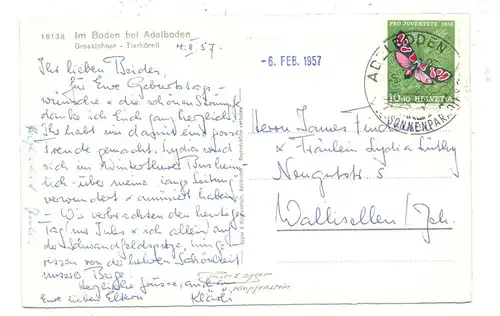 16138 Im Boden bei Adelboden
Grosslohner - Tierhörnli
4.II.57.
Ihr lieben Beiden,
für Eure Geburtstags-
wünsche & die schönen Strümpfe
danke ich Euch ganz herzlich.
Ihr habt mir damit eine grosse
Freude gemacht. Lydia wird
sich im Winterthurer
lich über meine
verwundert & amüsiert haben.
- Wir verbrachten den heutigen
Tag mit Jules & ich allein auf
der Schwandfeldspitze, hinge-
rissen von der hehren Schönheit
unserer Berge.
Herzliche Grüsse, auch an
Eure lieben Eltern Klärli
-6. FEB. 1957
PRO JUVENTUTE 1956
10+10 HELVETIA
ADELBODEN
SONNENPARADIES
Herrn James
& Fräulein Lydia Lüthy
Neugutstr. 5
Wallisellen / Zch.